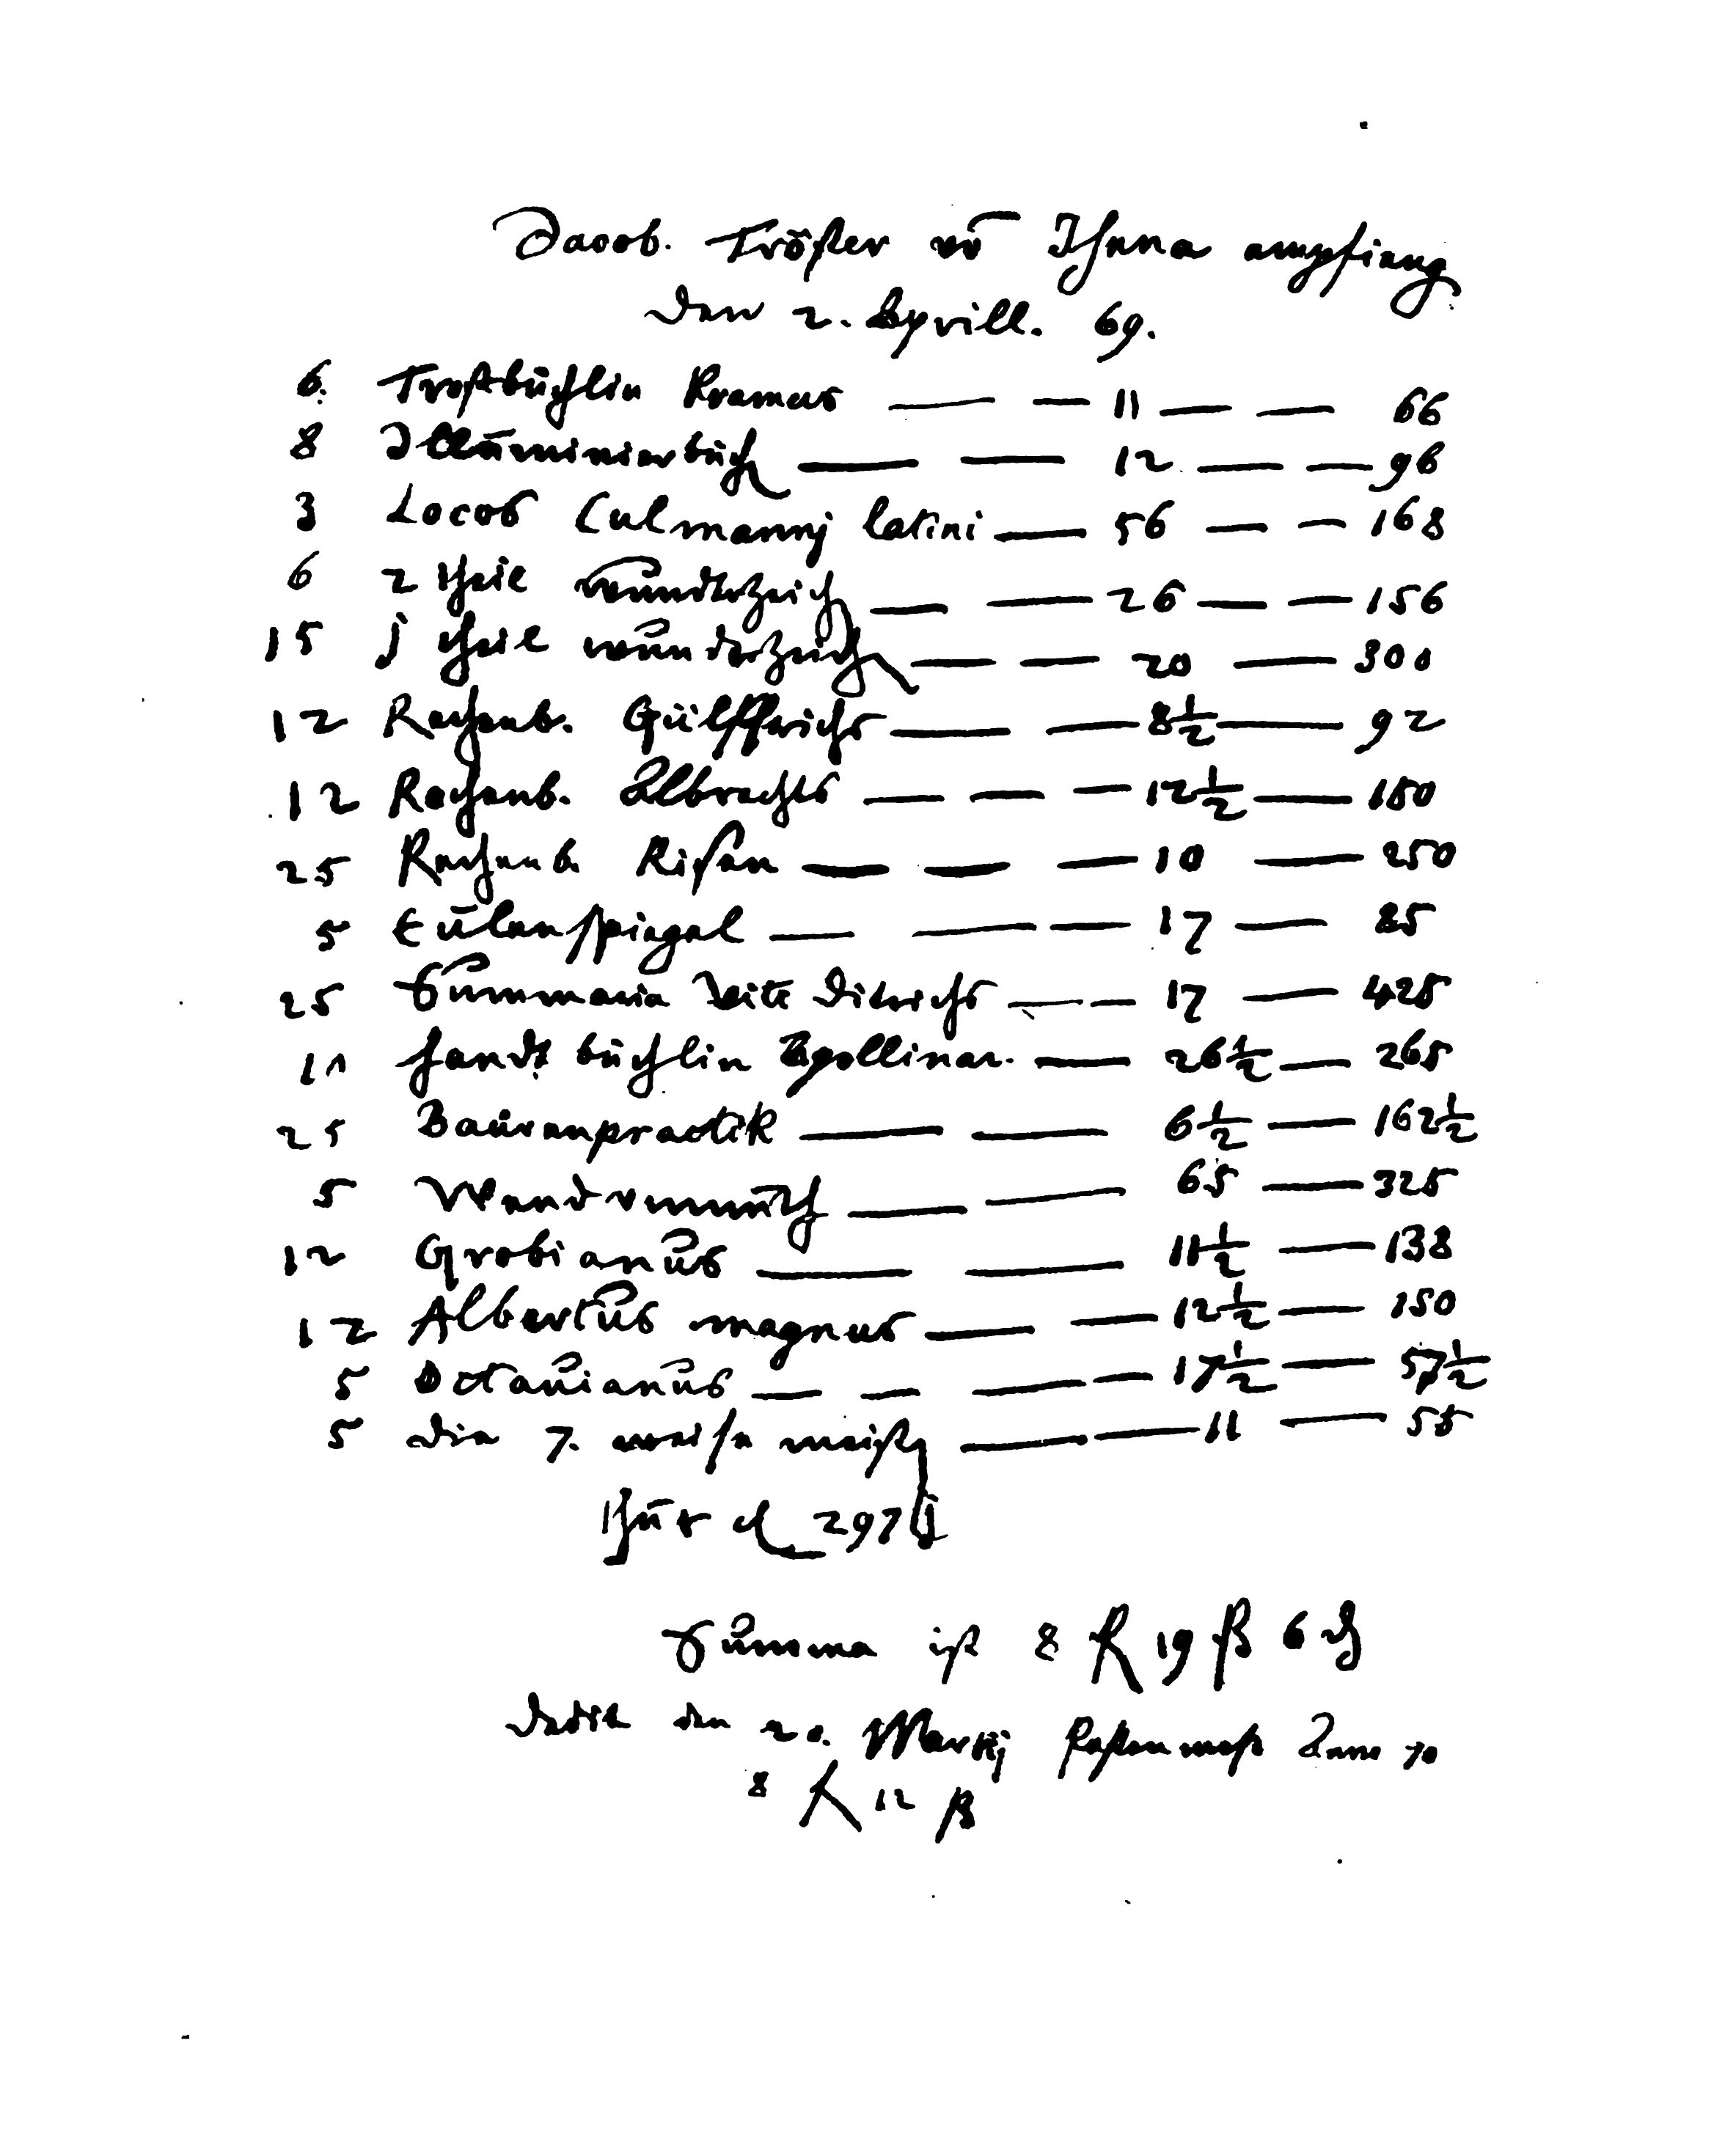 Jacob. Tröster vō Jhena empfieng
den 2. Apprill. 69.
6. Trostbüchlin Kramers — — 11 — — 66
8 Illuminierbuch — — 12 — — 96
3 Locos Culmannj latini — 56 — — 168
6 2 theil wunderzeich — — 26 — — 156
15 j theil wunderzeich — — 20 — 300
12 Rechenb. Gülfferichs — — 8½ — 92
12 Rechenb. Albrechts — — — 12½ — 150
25 Rechenb. Risen — — — 10 — 250
5 Eulenspiegel — — — 17 — 85
25 Summaria Veit Dietrichs — — 17 — 425
10 handt büchlin Apollinar. — 26½ — 265
25 Baurenpractik — — 6½ — 162½
5 Wendvnmuth — — 65 — 325
12 Grobianus — — 11½ — 138
12 Albertus magnus — — 12½ — 150
5 Octauianus — — — — 17½ — 57½
5 die 7. weise meister — — 11 — 55
thut 297
Summa ist 8 fl 19 ß 6 ₰
dedit den 20. Martij fastenmess Anno 70
8 fl 12 ß